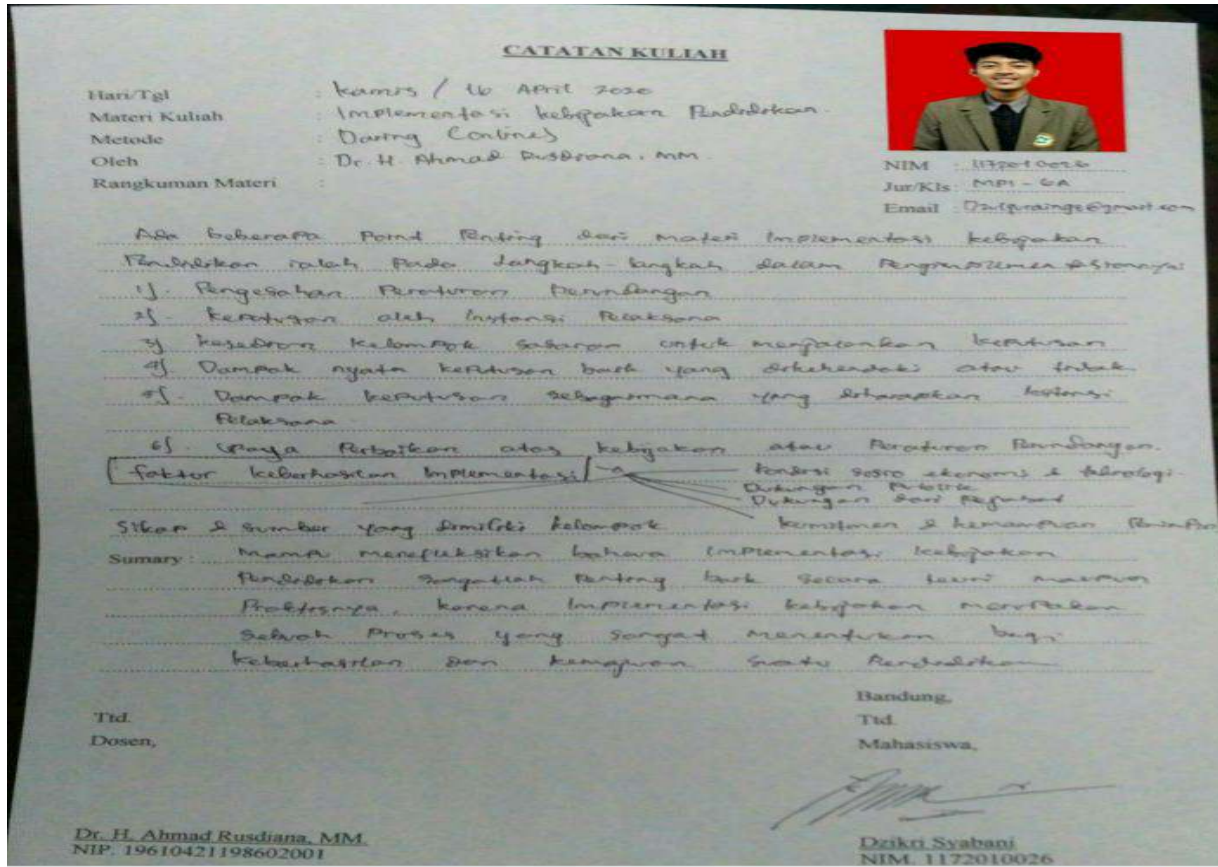 CATATAN KULIAH
Hari/Tgl : Kamis / 16 April 2020
Materi Kuliah : Implementasi kebijakan Pendidikan.
Metode : Daring (online)
Oleh : Dr. H. Ahmad Rusdiana, MM.
Rangkuman Materi :
NIM : 1172010026
Jur/Kls : MPI - 6A
Email :
Ada beberapa Point Penting dari materi Implementasi kebijakan
Pendidikan ialah Pada langkah-langkah dalam
1). Pengesahan Peraturan Perundangan
2). keputusan oleh Instansi Pelaksana
3) kesediaan kelompok sasaran untuk menjalankan keputusan
4). Dampak nyata keputusan baik yang dikehendaki atau tidak.
5). Dampak keputusan sebagaimana yang diharapkan Instansi
Pelaksana.
6). Upaya Perbaikan atas kebijakan atau Peraturan Perundangan.
faktor keberhasilan Implementasi
kondisi sosio ekonomi & teknologi.
Dukungan Publik
Dukungan dari Pejabat
Sikap & sumber yang dimiliki kelompok
komitmen & kemampuan
Sumary : Mampu merefleksikan bahwa Implementasi kebijakan
Pendidikan sangatlah Penting baik secara teori maupun
Praktisnya, karena Implementasi kebijakan merupakan
Sebuah Proses yang sangat menentukan bagi
keberhasilan dan kemajuan suatu Pendidikan
Ttd.
Dosen,
Dr. H. Ahmad Rusdiana, MM.
NIP. 19610421198602001
Bandung,
Ttd.
Mahasiswa,
Dzikri Syabani
NIM. 1172010026